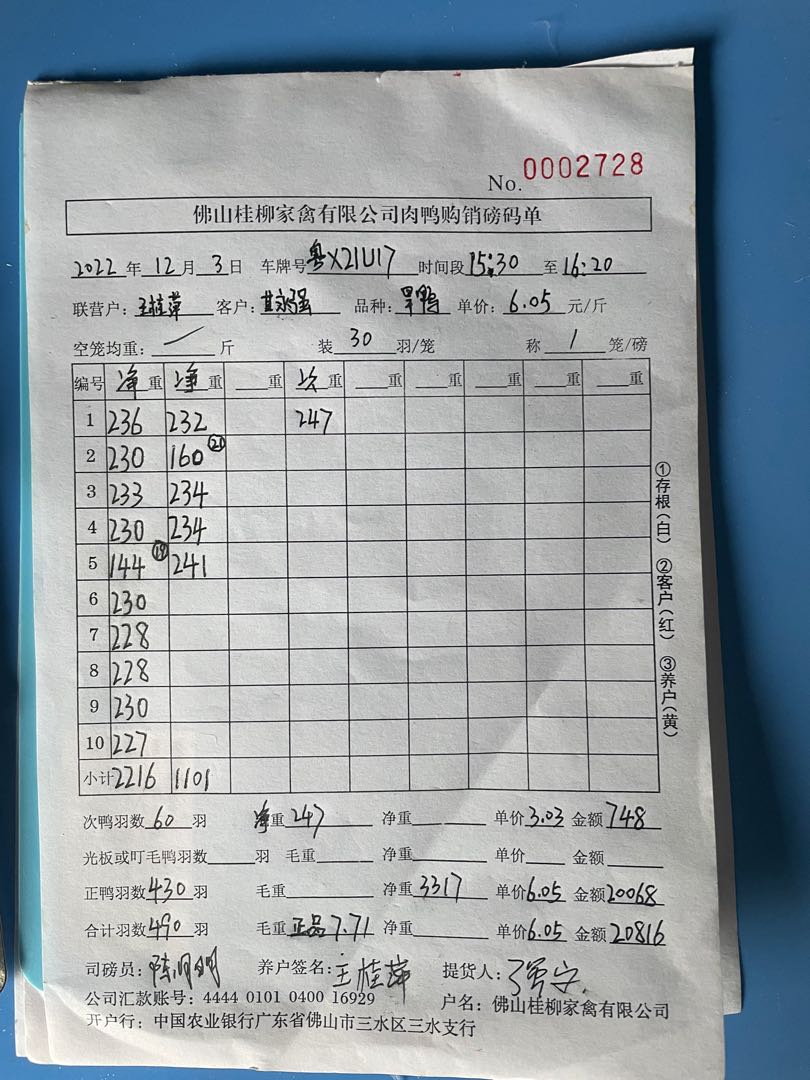 No. 0002728
佛山桂柳家禽有限公司肉鸭购销磅码单
2022年12月3日 车牌号粤X21U17 时间段15:30至16:20
联营户:王桂萍 客户:永强 品种:旱鸭 单价:6.05元/斤
空笼均重:/斤 装30羽/笼 称1笼/磅
编号 净重 净重 重 次重 重 重 重 重 重
1 236 232 247
2 230 160 ㉑
3 233 234
4 230 234
5 144 ⑲ 241
6 230
7 228
8 228
9 230
10 227
小计 2216 1101
次鸭羽数60羽 净重247 净重 单价3.03 金额748
光板或叮毛鸭羽数 羽 毛重 净重 单价 金额
正鸭羽数430羽 毛重 净重3317 单价6.05 金额20068
合计羽数490羽 毛重正品7.71 净重 单价6.05 金额20816
司磅员:陈明明 养户签名:王桂萍 提货人:
公司汇款账号:4444 0101 0400 16929 户名:佛山桂柳家禽有限公司
开户行:中国农业银行广东省佛山市三水区三水支行
①存根(白) ②客户(红) ③养户(黄)